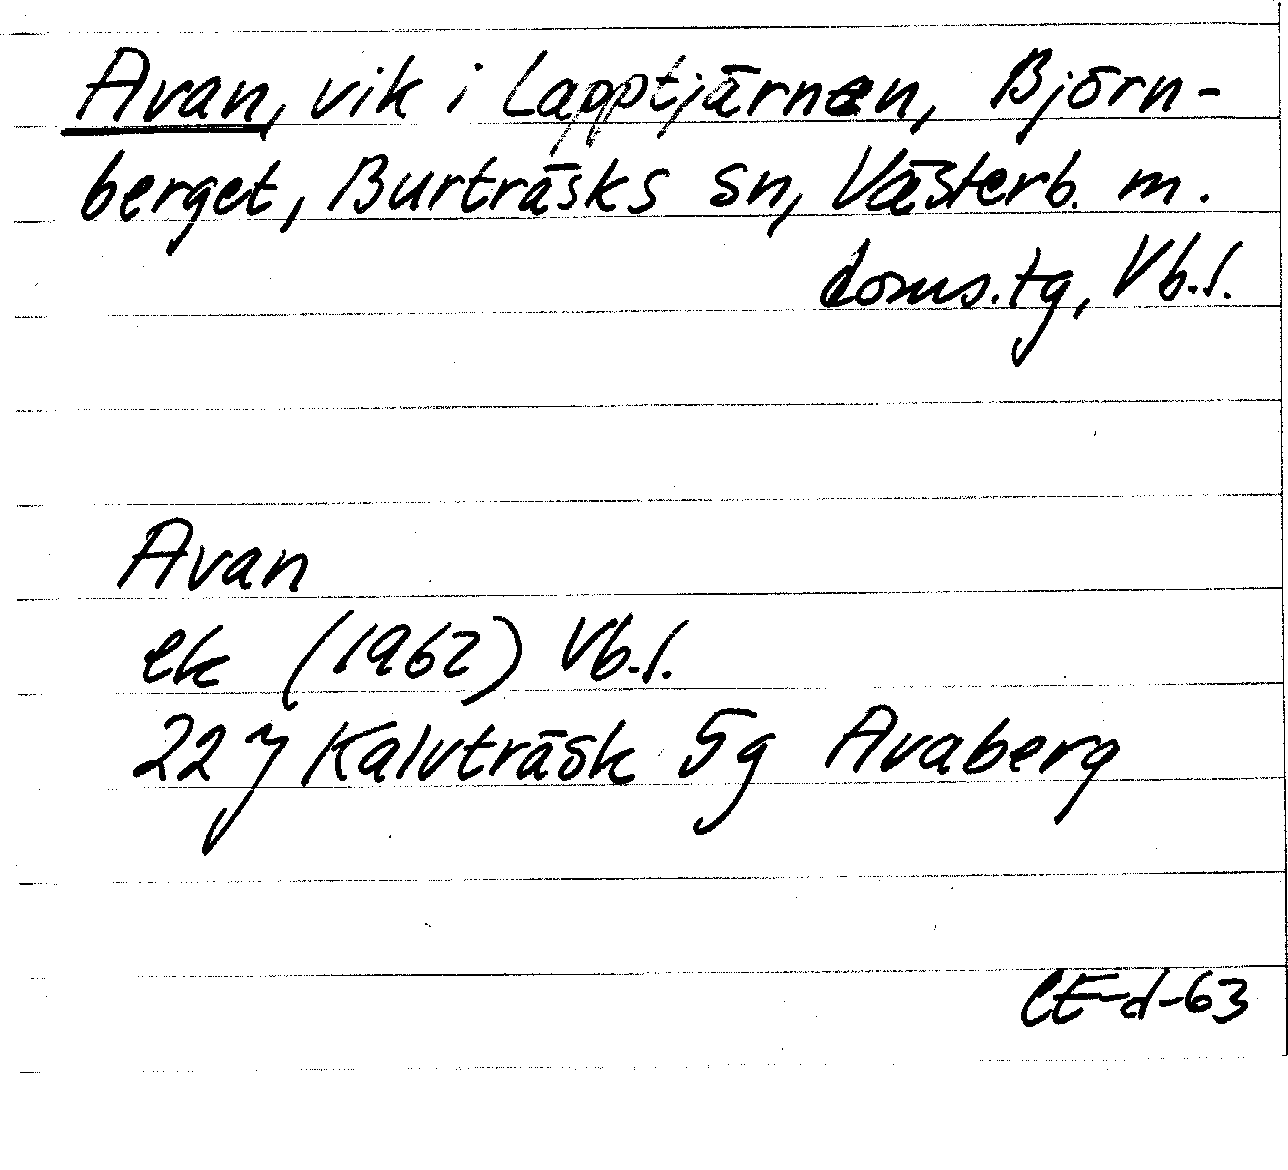 Avan, vik i Lapptjärnen, Björn-
berget, Burträsks sn, Västerb. m.
doms.tg, Vb.l.
Avan
ek (1962) Vb.l.
22 J Kalvträsk 5g Avaberg
CE-d-63